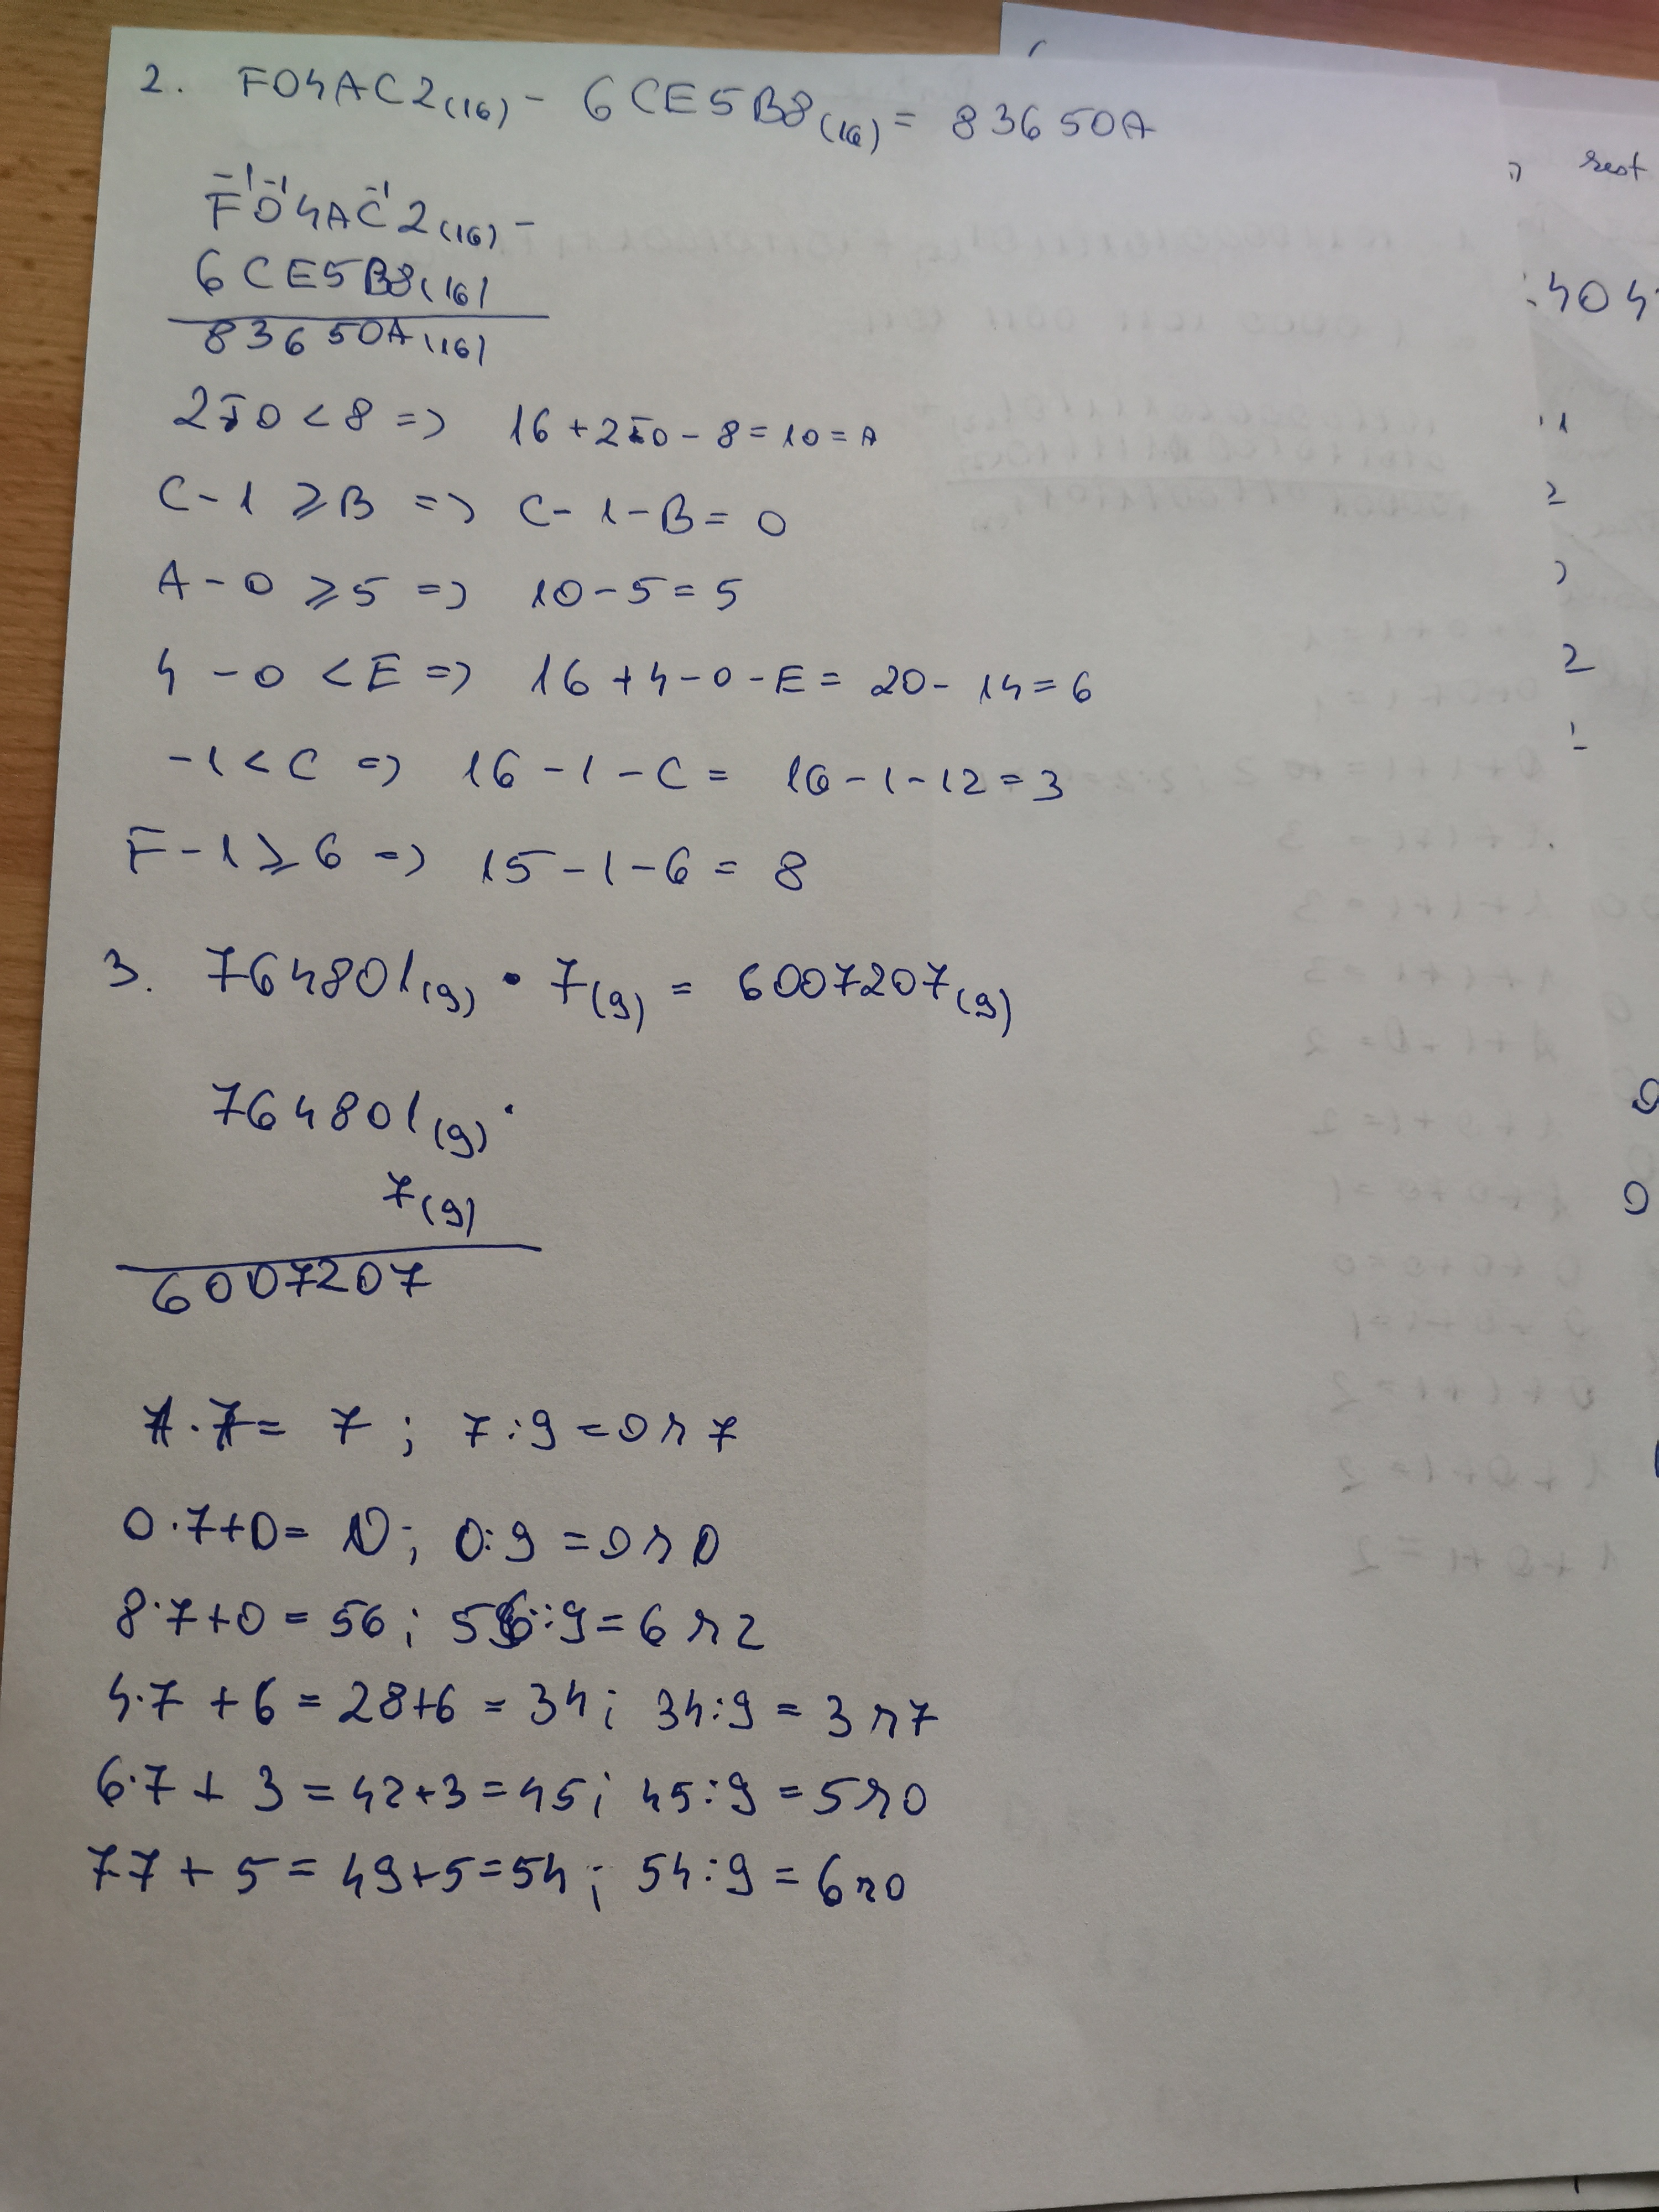 2. F04AC2(16) - 6CE5B8(16) = 83650A
-1 -1 -1
F04AC2(16) -
6CE5B8(16)
83650A(16)
2-0 < 8 => 16+2-0-8=10=A
C-1 ≥ B => C-1-B=0
A-0 ≥ 5 => 10-5=5
4-0 < E => 16+4-0-E=20-14=6
-1 < C => 16-1-C= 16-1-12=3
F-1 ≥ 6 => 15-1-6=8
3. 764801(9) • 7(9) = 6007207(9)
764801(9) ·
7(9)
6007207
1·7= 7; 7:9=0 r 7
0·7+0= 0; 0:9=0 r 0
8·7+0=56; 56:9=6 r 2
4·7+6=28+6=34; 34:9=3 r 7
6·7+3=42+3=45; 45:9=5 r 0
7·7+5=49+5=54; 54:9=6 r 0
rest
404
1
2
2
0
0